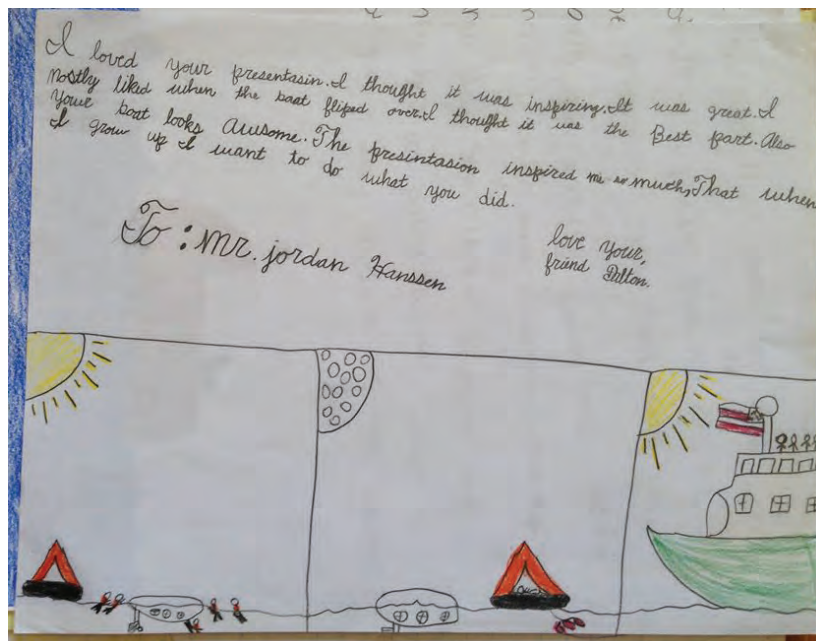 I loved your presentasin. I thought it was inspiring. It was great. I
mostly liked when the boat fliped over. I thought it was the Best part. Also
youre boat looks Awsome. The presintasion inspired me so much, That when
I grow up I want to do what you did.
To: Mr. jordan Hanssen
love your,
friend Dilton.